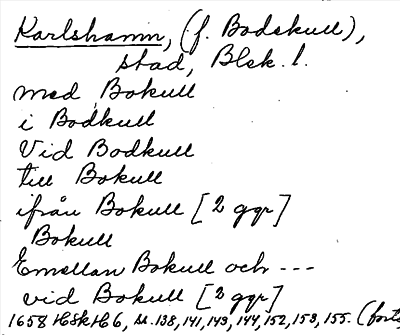 Karlshamn, (f. Bodekull),
stad, Blek. l.
med Bokull
i Bodkull
Vid Bodkull
till Bokull
ifrån Bokull [2 ggr]
Bokull
Emellan Bokull och ---
vid Bokull [2 ggr]
1658 HSkH 6, s. 138, 141, 143, 144, 152, 153, 155. (forts